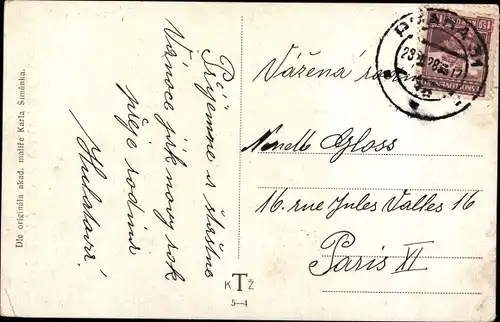 Dle originálu akad. malíře Karla Šimůnka.
Příjemné a šťastné
Vánoce jak nový rok
přeje rodina
PRAHA 31
Vážená
Gloss
16. rue Jules Valles 16
Paris XI
K T Ž
5-4